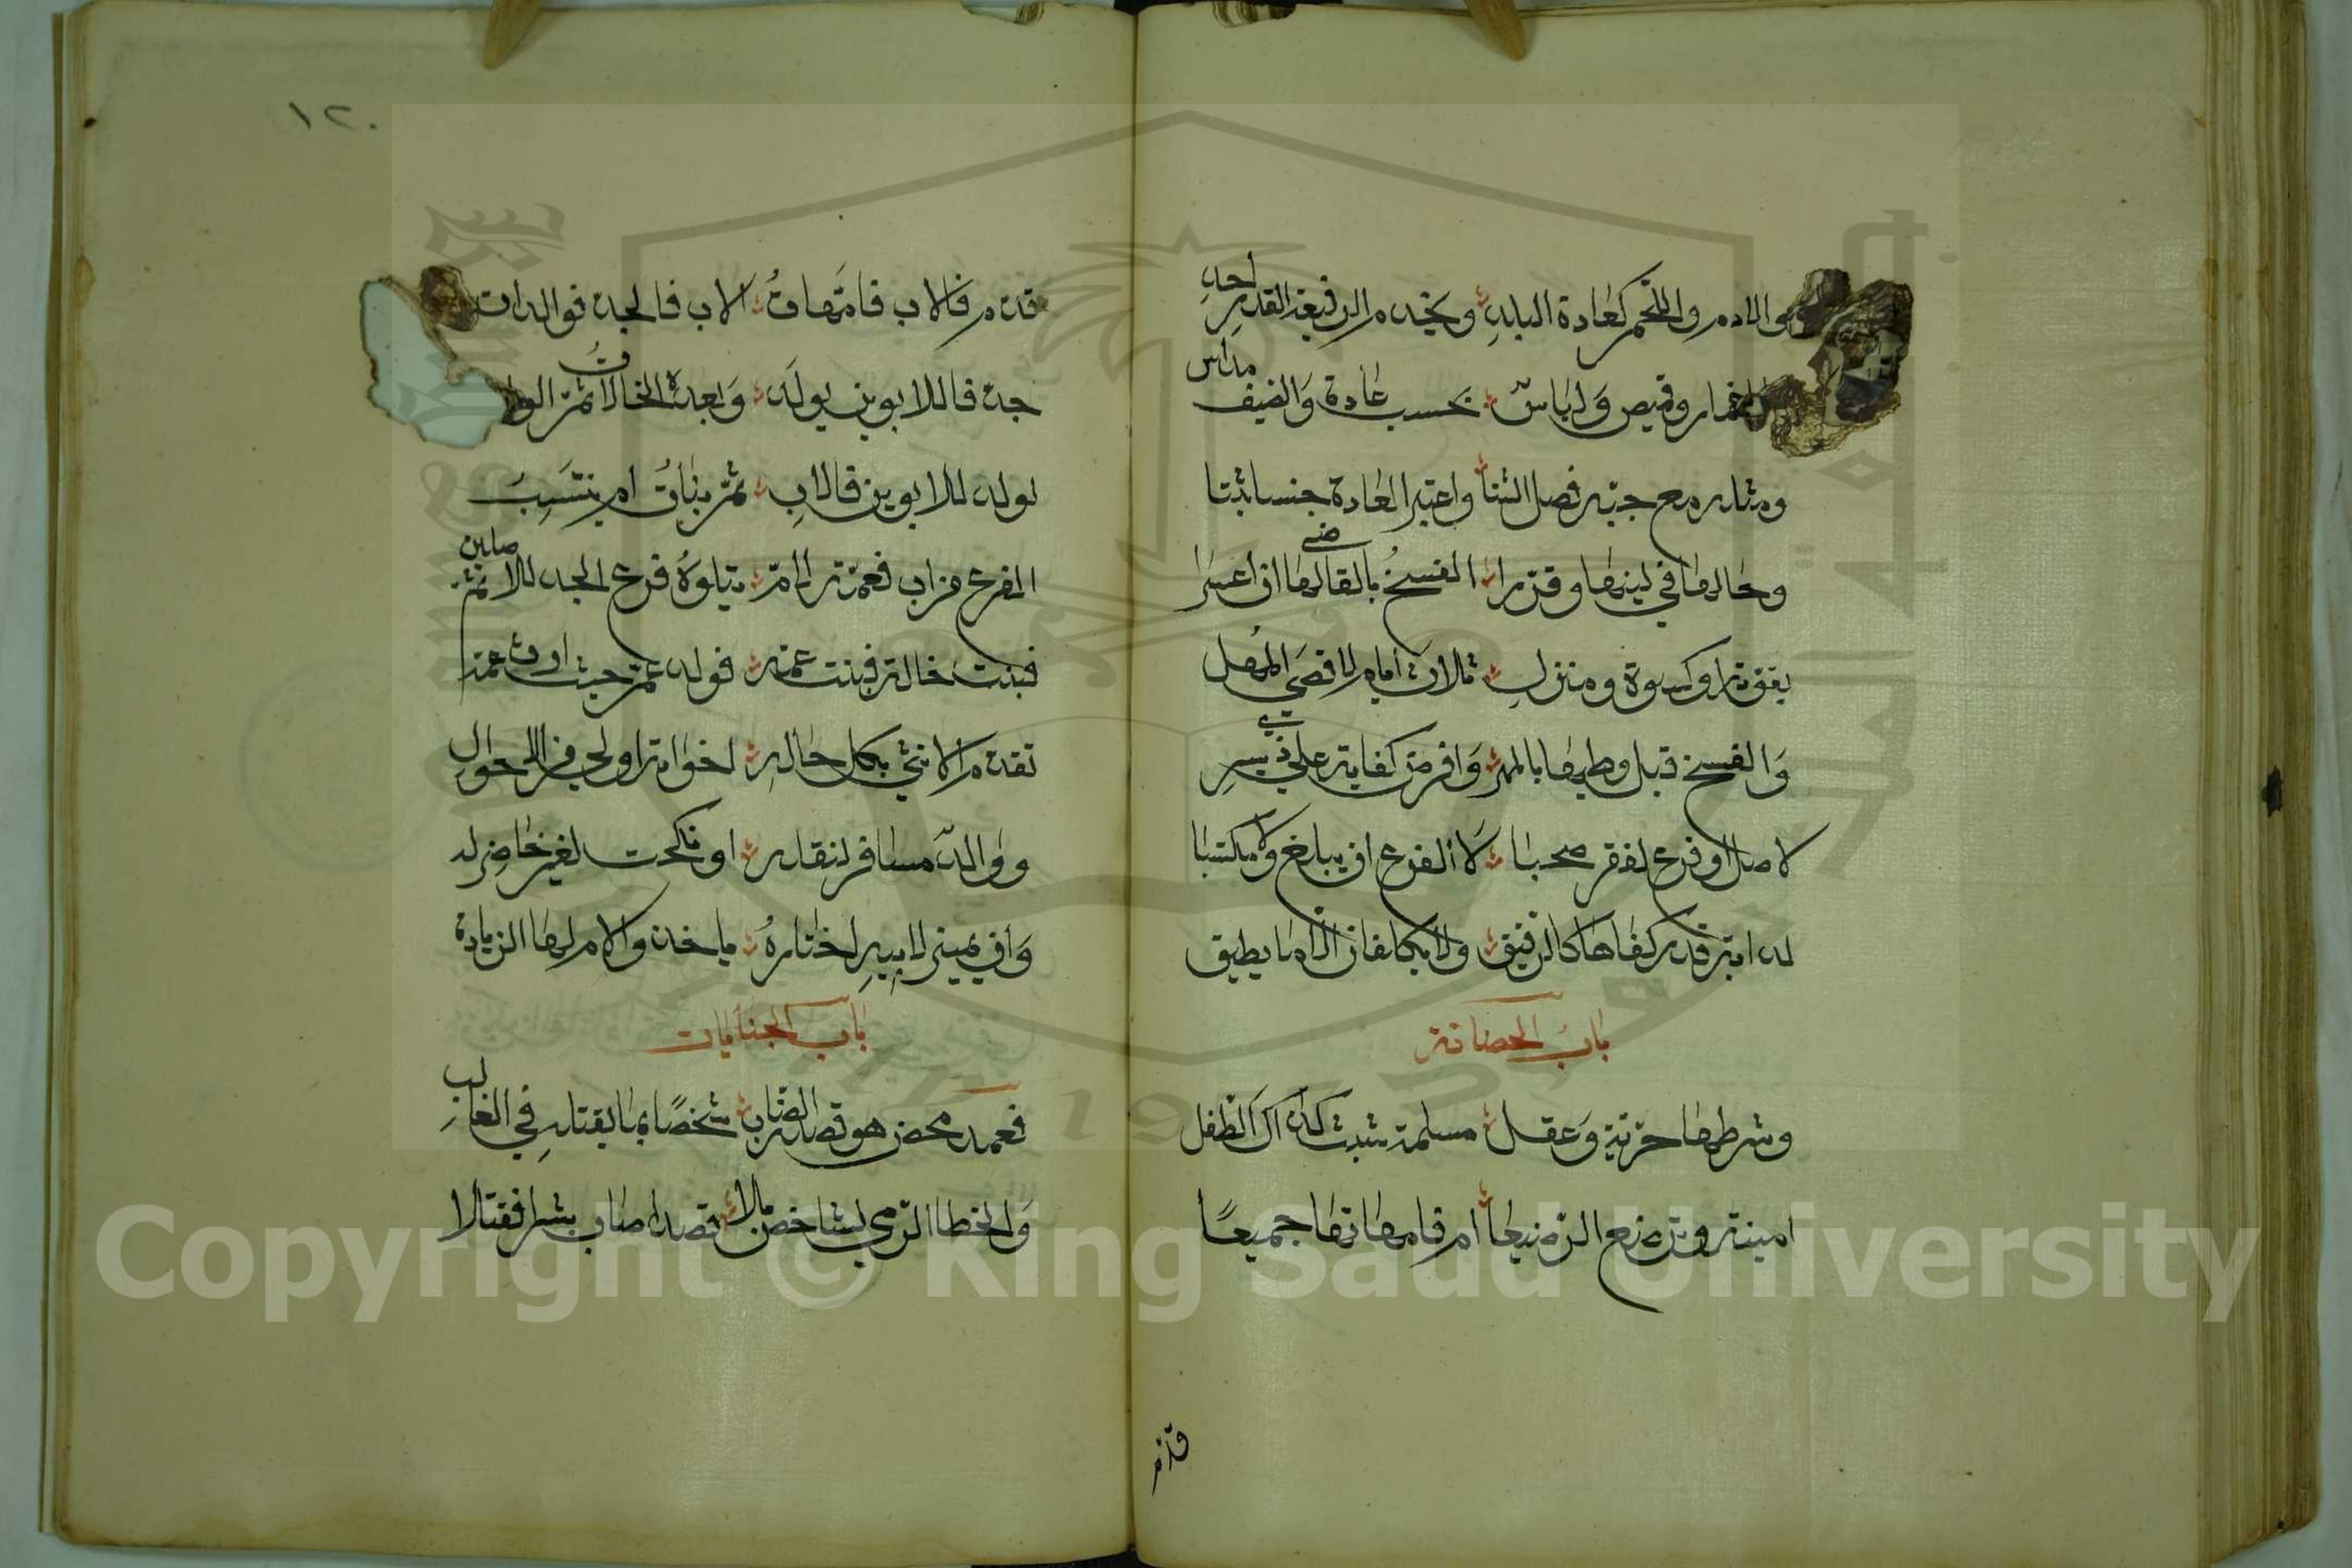 والادم واللحم كعادة البلد ويخدم الرفيعة القدر احد
الخمار وقميص ولباس بحسب عادة والصيف مداس
ومثله مع جبة فصل الشتا واعتبر العادة جنسا ثبتا
وحالها في لينها وقررا الفسخ بالقاضي لها ان اعسرا
بقوتها وكسوة ومنزل ثلاث ايام لاقصى المهل
والفسخ قبل وطيها بالمهر وافرض كفاية على ذي يسر
لاصل او فرع لفقر صحبا لا الفرع ان يبلغ ولا مكتسبا
لدابة قدر كفاها كالرقيق ولا يكلفان الا ما يطيق
باب الحضانة
وشرطها حرية وعقل مسلمة حيث كذاك الطفل
امينة وترضع الرضيعا ام فامهاتها جميعا
قدم
١٢٠
قدم فالاب فامهات الاب فالجد فوالدات
جد فاللابوين يولد وبعده الخالات ثم
لولد للابوين فالاب ثم بنات ام ينتسب
الفرع من اب فعمة لام يتلوه فرع الجد للاصلين ثم
فبنت خالة فبنت عمه فولد عم حيث ارث عمه
تقدم الانثى بكل حال اخواته اولى في الاحوال
ووالد مسافر لنقله او نكحت لغير حاضن له
وان يميز لابيه اختاره ياخذه والام لها الزياره
باب الجنايات
فعمد محض هو قصد الضارب شخصا بما يقتله في الغالب
والخطا الرمي لشاخص بلا قصد اصاب بشرا فقتلا
Copyright © King Saud University